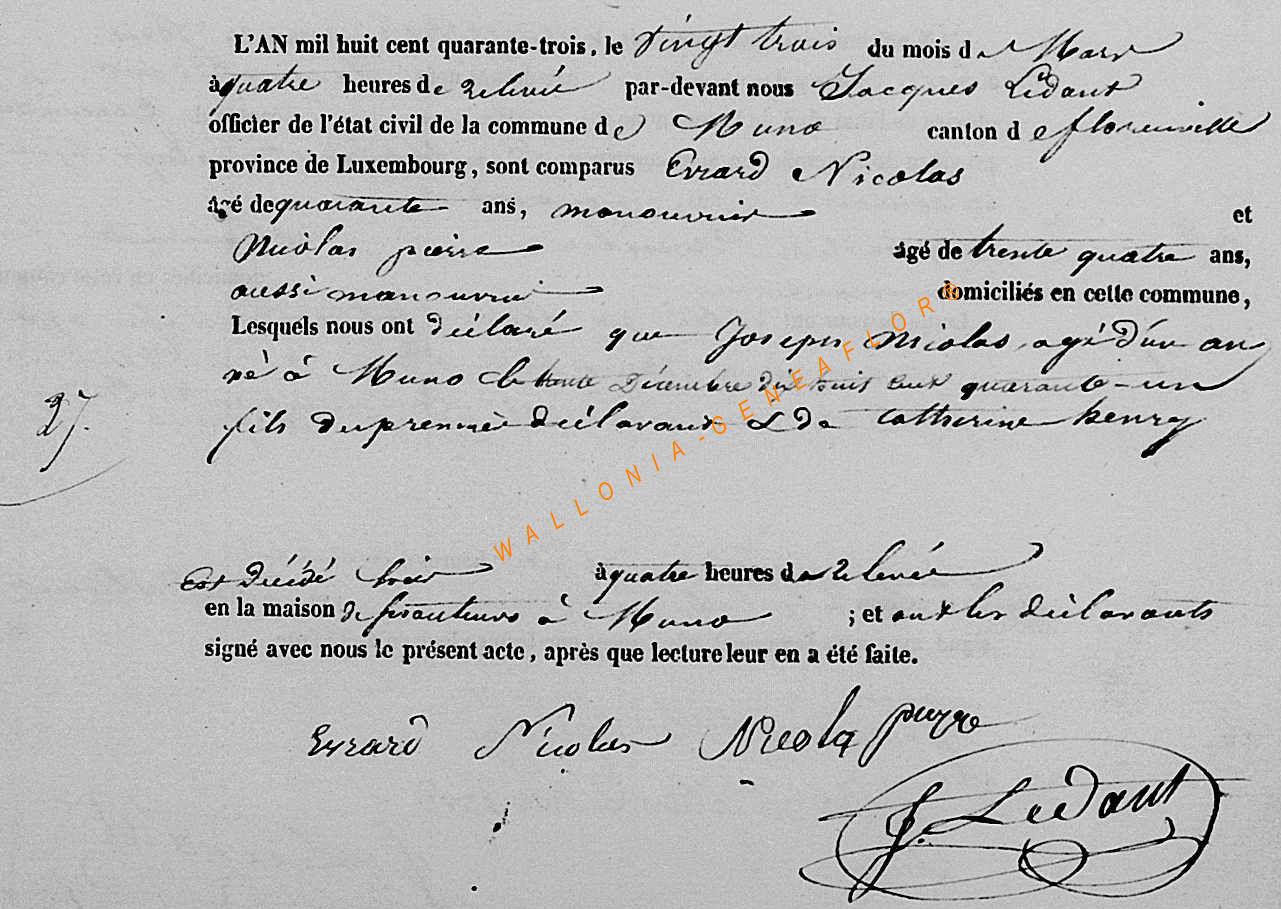 L'AN mil huit cent quarante-trois, le vingt trois du mois de Mars
à quatre heures de relevée par-devant nous Jacques Lédant
officier de l'état civil de la commune de Muno canton de florenville
province de Luxembourg, sont comparus Evrard Nicolas
âgé de quarante ans, manouvrier et
Nicolas pierre âgé de trente quatre ans,
aussi manouvrier domiciliés en cette commune,
Lesquels nous ont déclaré que Joseph Nicolas, agé d'un an
né à Muno le trente Décembre dix huit cent quarante-un
fils du premier déclarant & de Catherine henry
27.
Est décédé hier à quatre heures de relevée
en la maison de à Muno ; et ont les déclarants
signé avec nous le présent acte, après que lecture leur en a été faite.
Evrard Nicolas Nicola
J. Lédant
WALLONIA-GENEAFLOR®